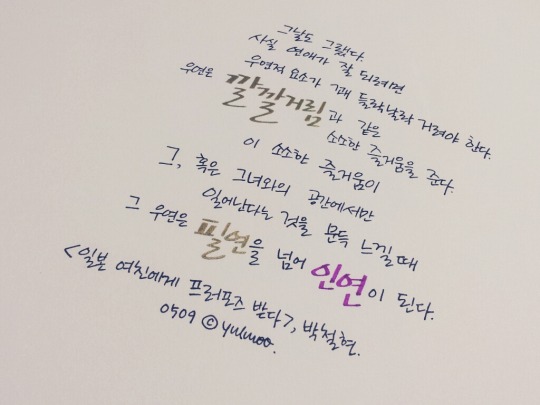 그날도 그랬다.
사실 연애가 잘 되려면
우연적 요소가 꽤 들락날락 거려야 한다.
우연은 깔깔거림과 같은
소소한 즐거움을 준다.
이 소소한 즐거움이
그, 혹은 그녀와의 공간에서만
일어난다는 것을 문득 느낄때
그 우연은 필연을 넘어 인연이 된다.
<일본 여친에게 프러포즈 받다>, 박철현.
0509 © yulmoo.